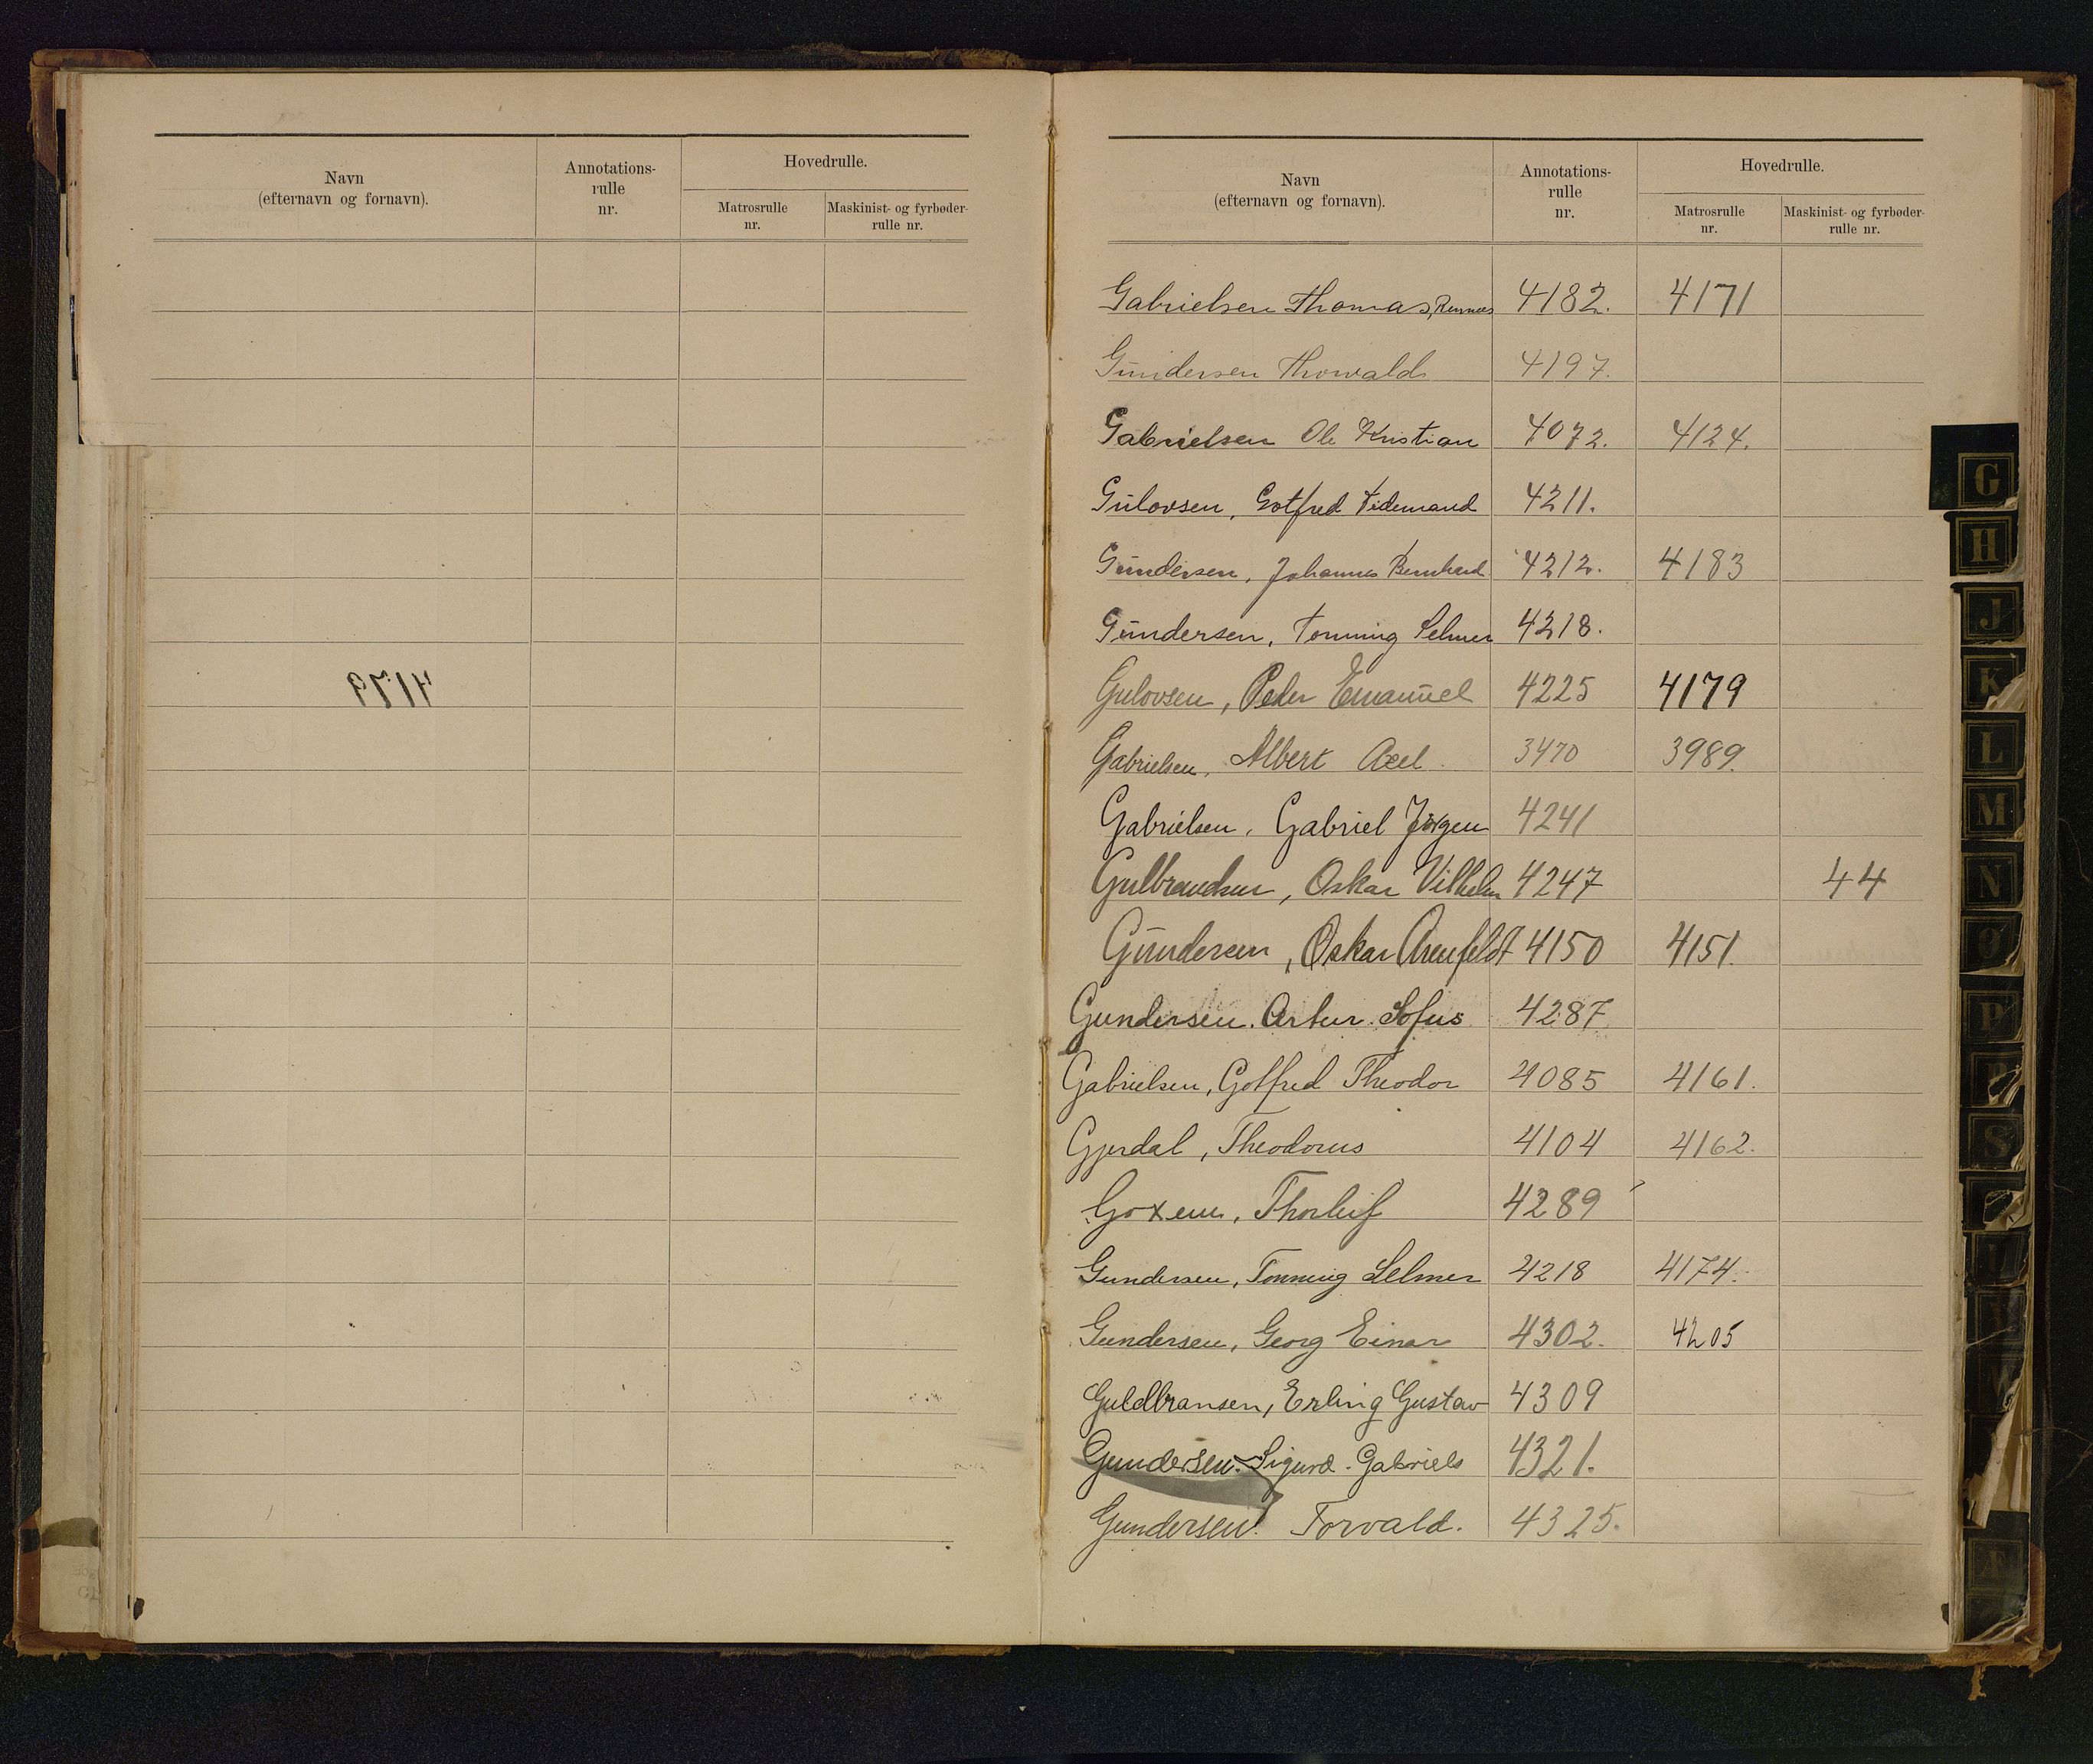 Navn
(efternavn og fornavn).
Annotations-
rulle
nr.
Hovedrulle.
Matrosrulle
nr.
Maskinist- og fyrbøder-
rulle nr.
4179
Navn
(efternavn og fornavn).
Annotations-
rulle
nr.
Hovedrulle.
Matrosrulle
nr.
Maskinist- og fyrbøder-
rulle nr.
Gabrielsen Thomas, 4182. 4171
Gundersen Thorvald 4197.
Gabrielsen Ole Kristian 4072. 4124.
Gulovsen, Gotfred Tidemand 4211.
Gundersen, Johannes Bernhard 4212. 4183
Gundersen, Tonning Selmer 4218.
Gulovsen, Peder Emanuel 4225 4179
Gabrielsen, Albert Axel 3470 3989.
Gabrielsen, Gabriel Jörgen 4241
Gulbrandsen, Oskar Vilhelm 4247 44
Gundersen, Oskar Arenfeldt 4150 4151.
Gundersen. Artur. Sofus 4287
Gabrielsen, Gotfred Theodor 4085 4161.
Gjerdal, Theodorus 4104 4162.
Goxem, Thorleif 4289
Gundersen, Tonning Selmer 4218 4174.
Gundersen, Georg Einar 4302. 4205
Guldbransen, Erling Gustav 4309
Gundersen. Sigurd. Gabriels 4321.
Gundersen. Torvald. 4325.
G
H
J
K
L
M
N
O
P
R
S